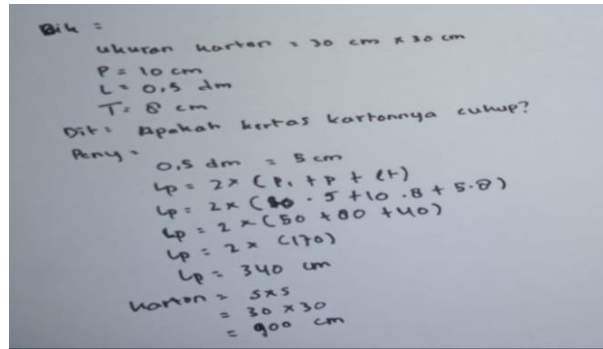 Dik =
ukuran karton = 30 cm x 30 cm
P = 10 cm
L = 0,5 dm
T = 8 cm
Dit = Apakah kertas kartonnya cukup?
Peny =
0,5 dm = 5 cm
Lp = 2 x (Pl + P + Lt)
Lp = 2 x (10 . 5 + 10 . 8 + 5 . 8)
Lp = 2 x (50 + 80 + 40)
Lp = 2 x (170)
Lp = 340 cm
karton = s x s
= 30 x 30
= 900 cm